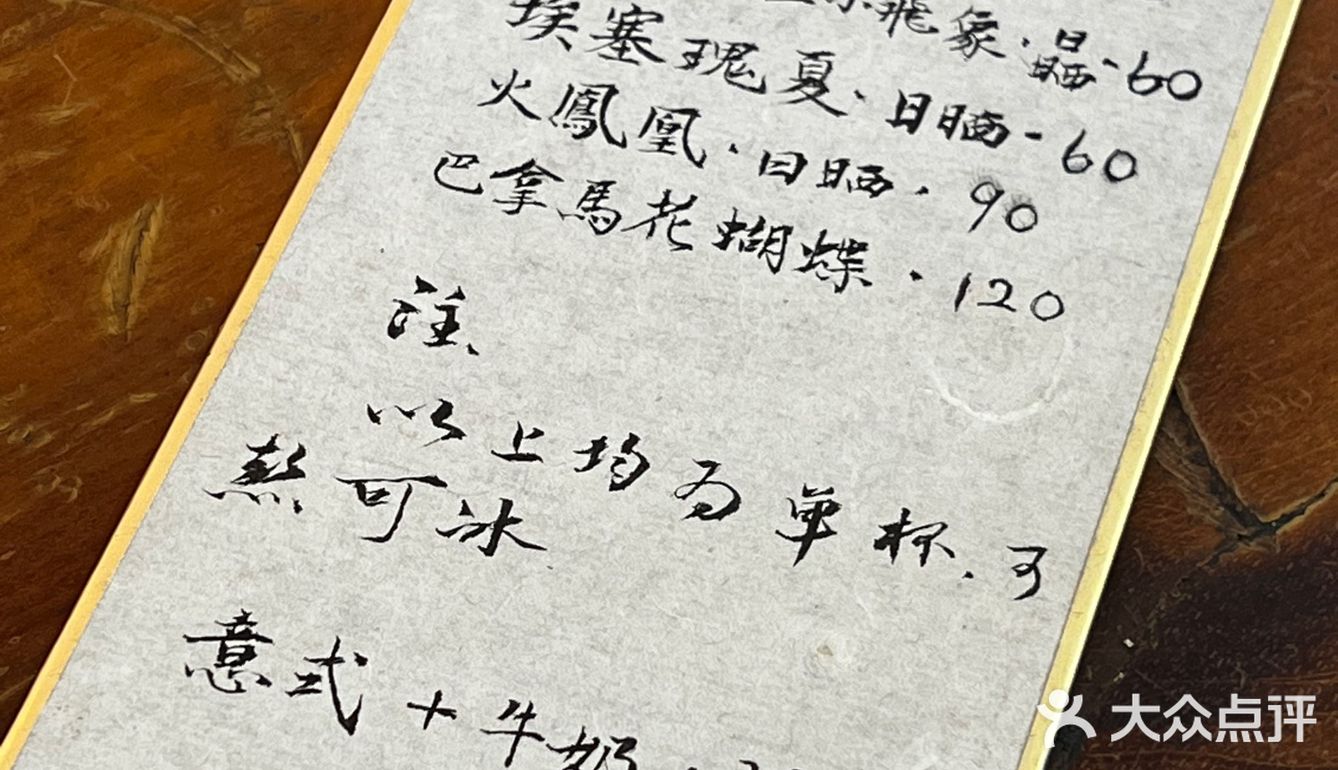 飛象·日晒·60
埃塞瑰夏·日晒-60
火鳳凰·日晒·90
巴拿馬花蝴蝶·120
注、
以上均为单杯、可
熱可冰
意式+牛奶
大众点评